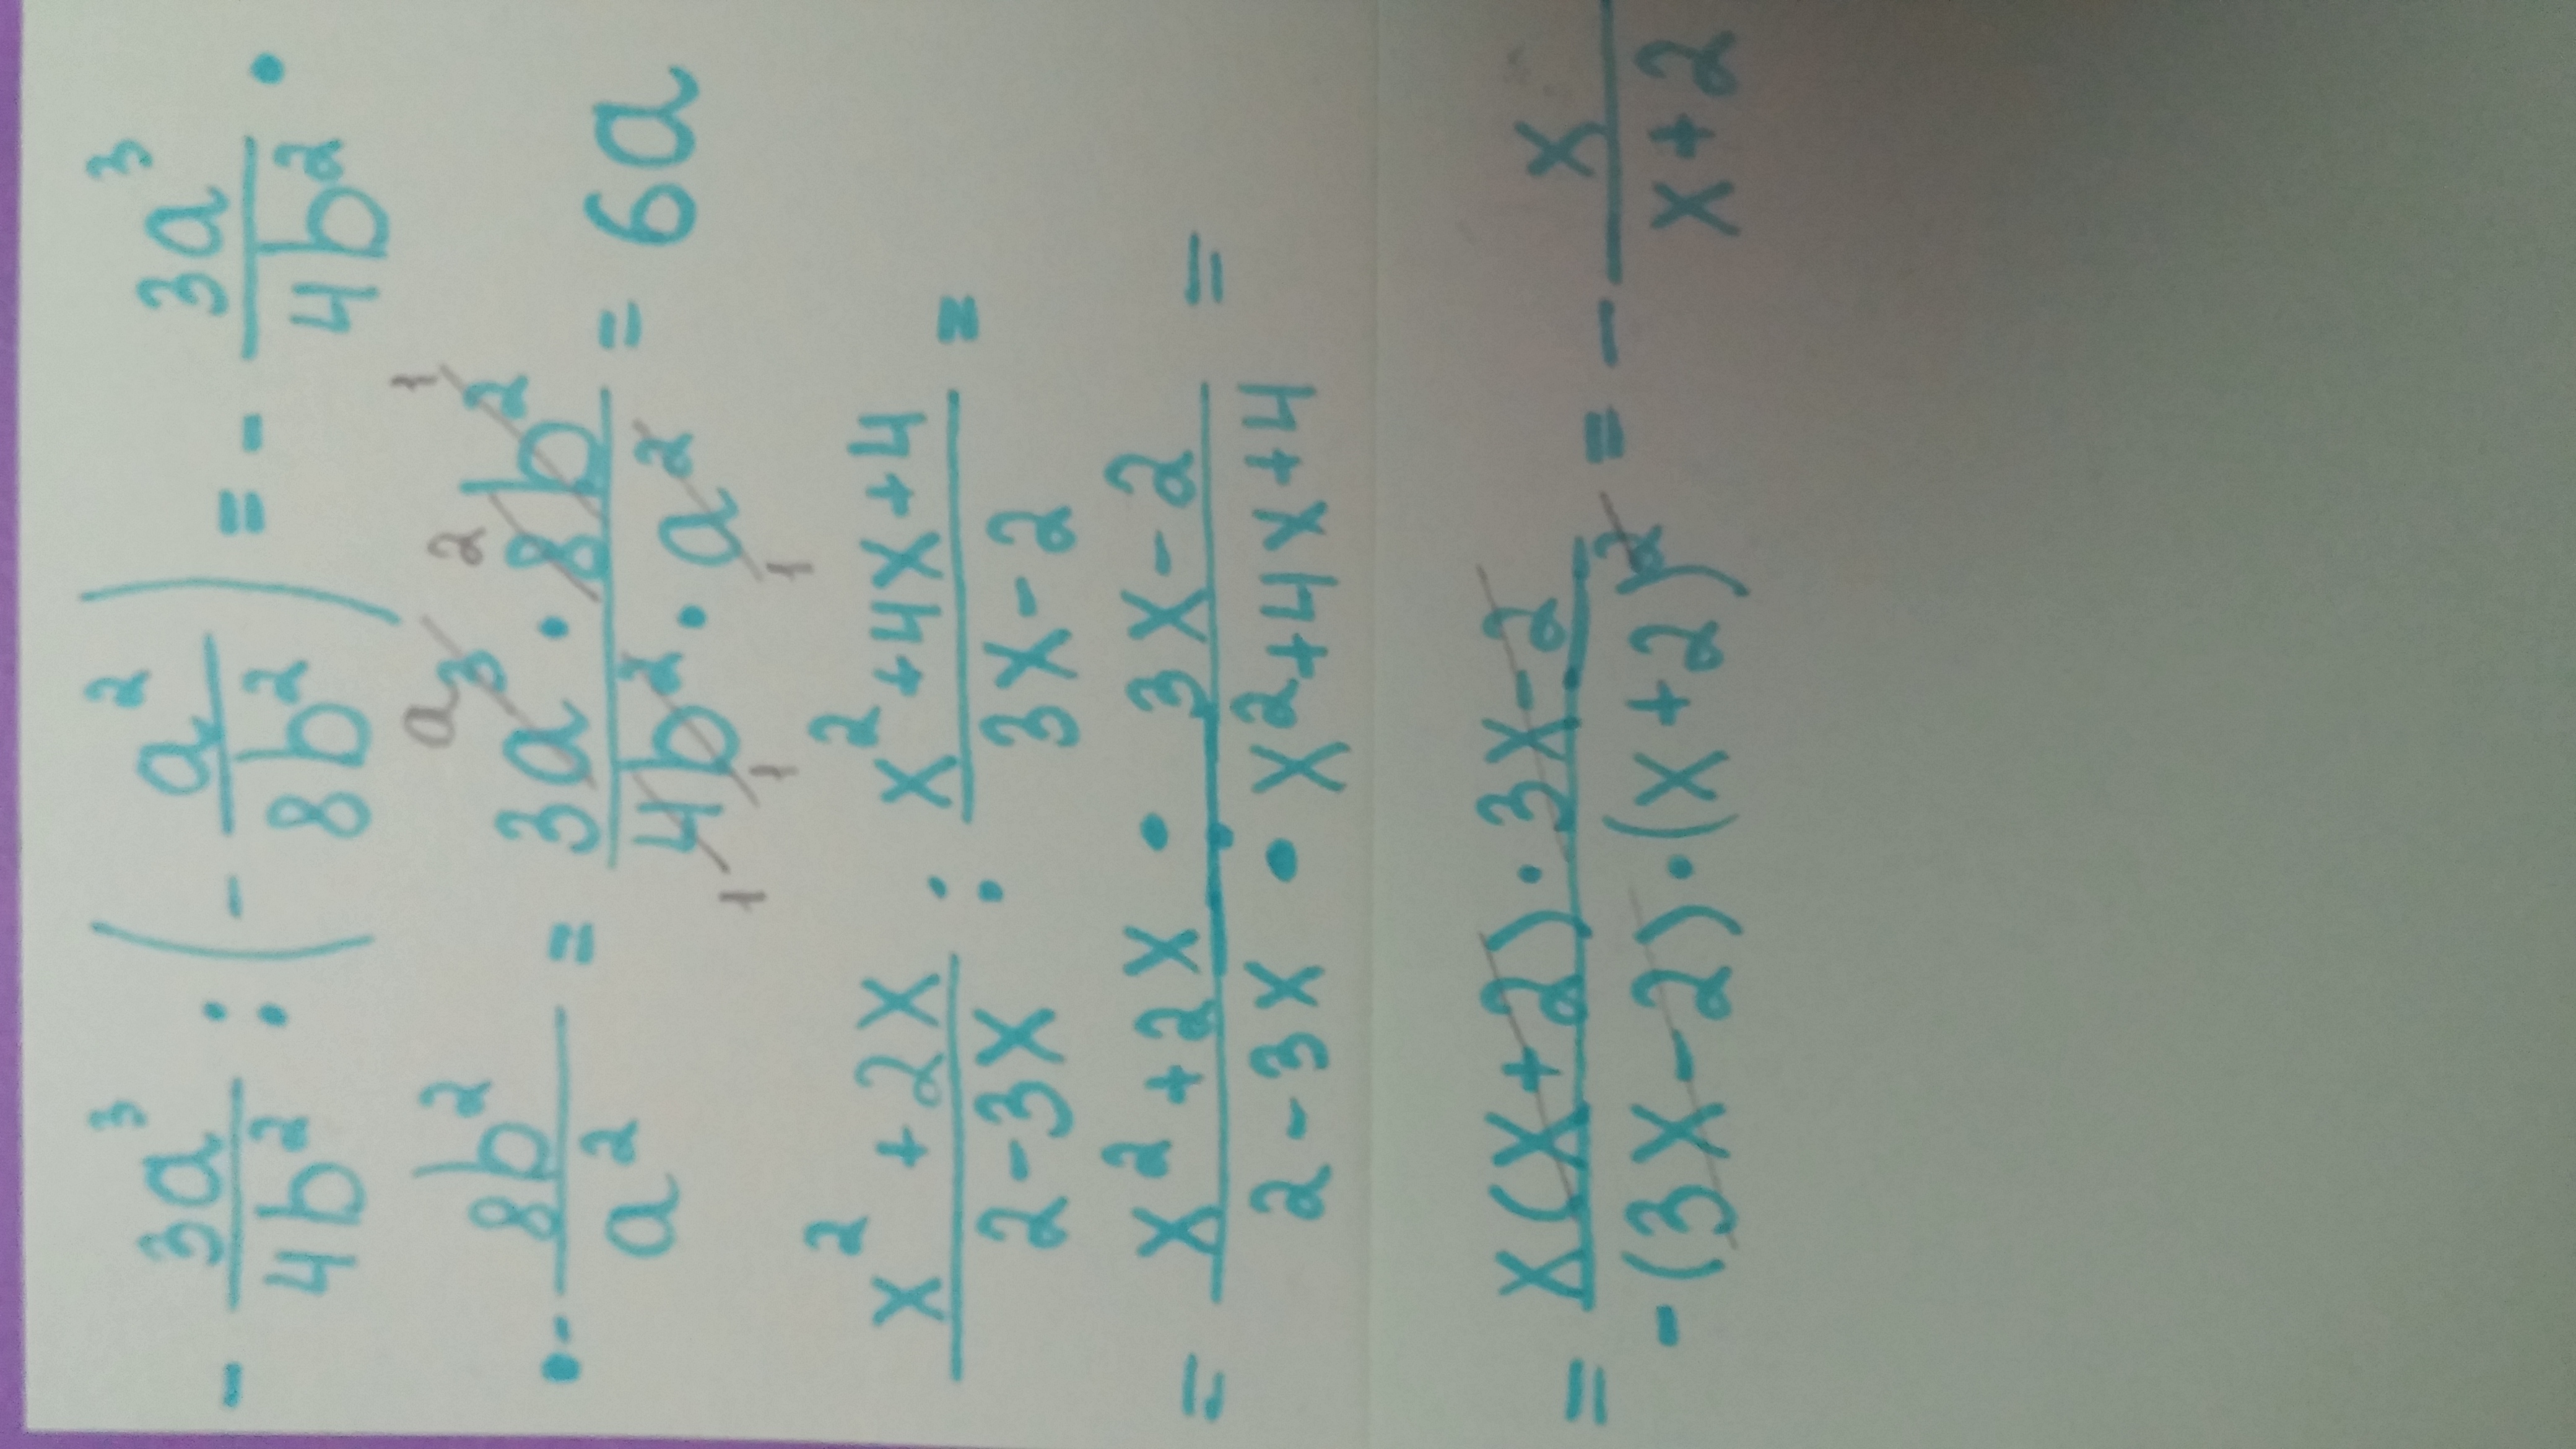 - 3a³/4b² : (- a²/8b²) = - 3a³/4b² ·
· - 8b²/a² = 3a³ · 8b²/4b² · a² = 6a
a 2 1
1 1 1
x² + 2x/2-3x : x²+4x+4/3x-2 =
= x²+2x · 3x-2/2-3x · x²+4x+4 =
= x(x+2) · 3x-2/-(3x-2) · (x+2)² = - x/x+2